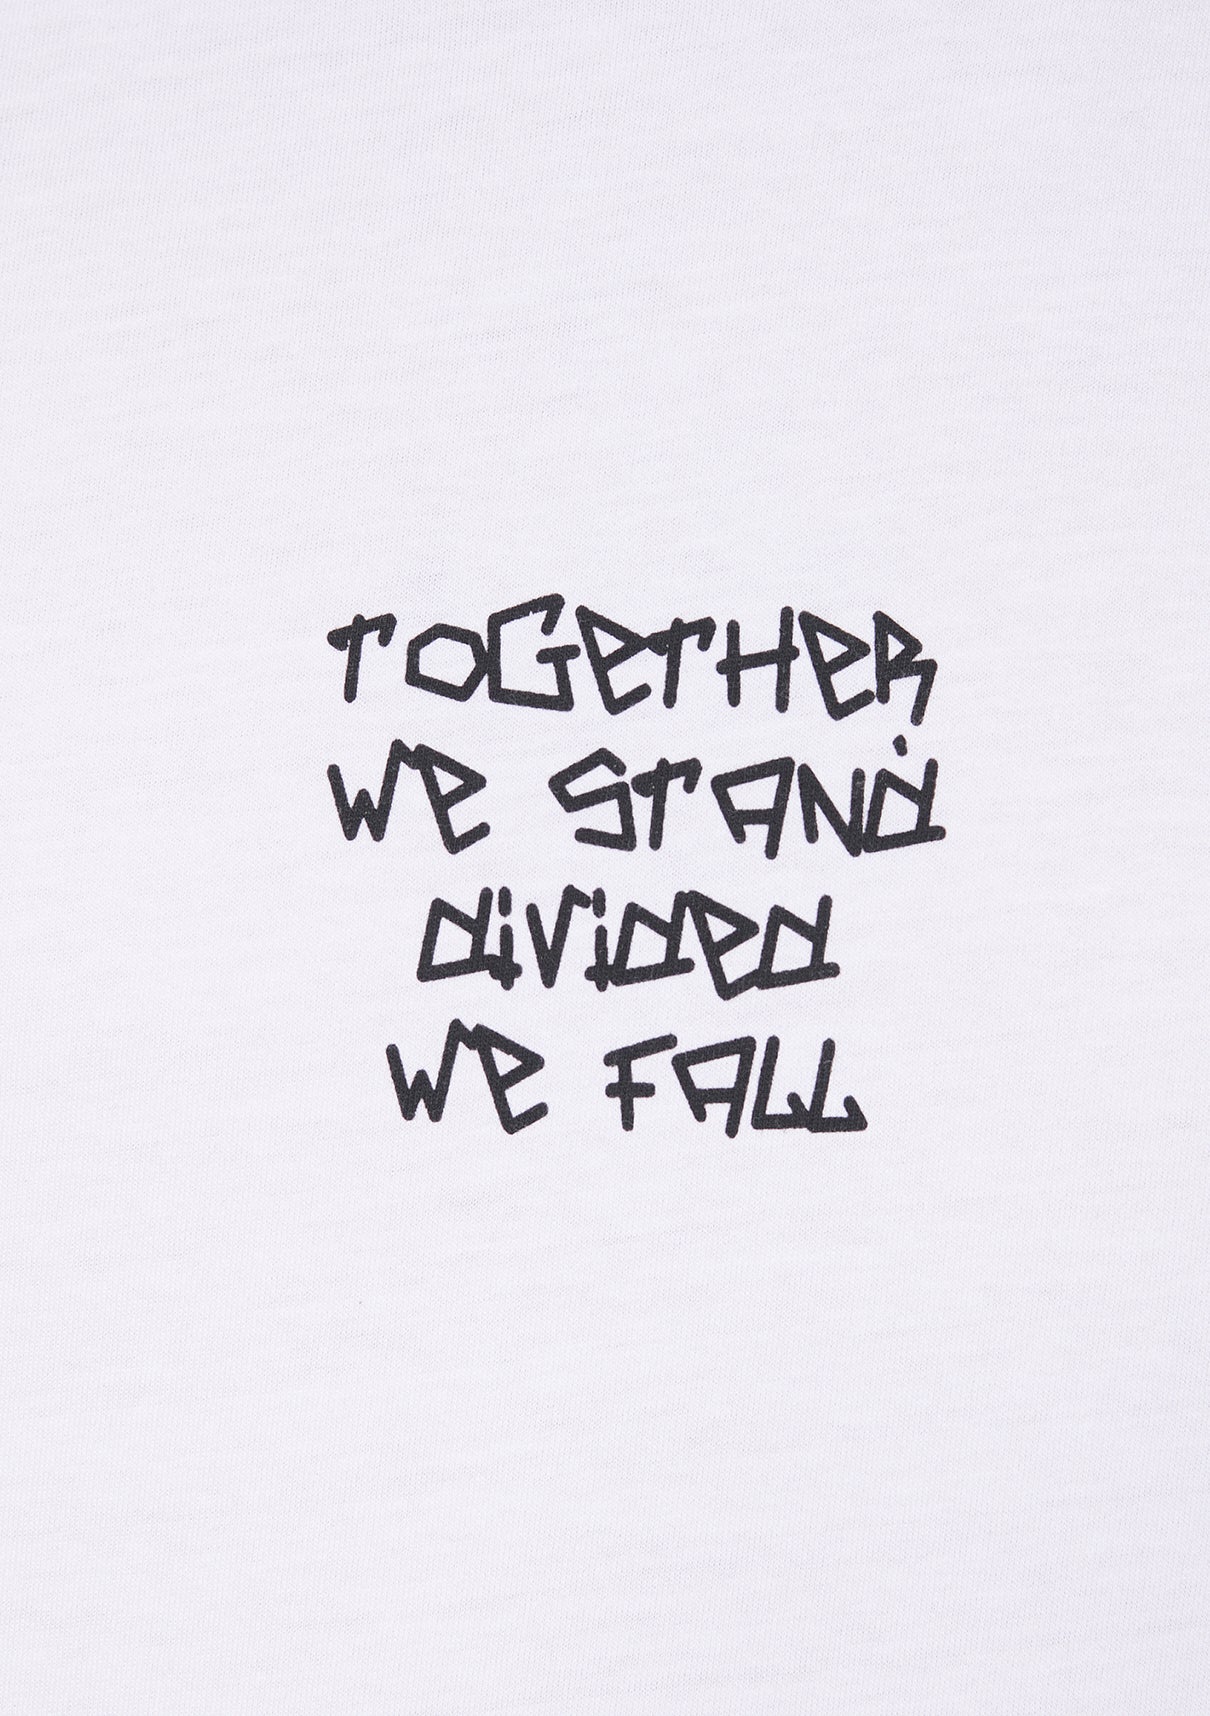 TOGeTHeR
We STANd
divided
We FALL